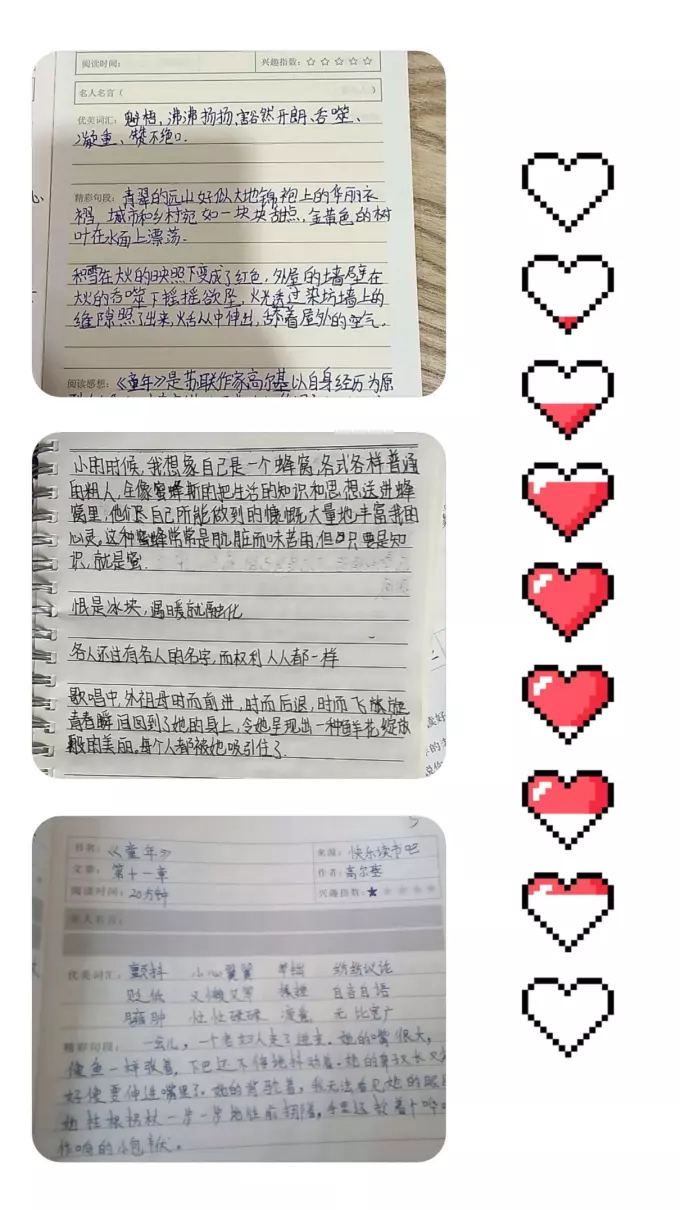 阅读时间：
兴趣指数：☆☆☆☆☆
名人名言（ ）
优美词汇：魁梧、沸沸扬扬、豁然开朗、吞噬、
凝重、赞不绝口.
精彩句段：青翠的远山好似大地锦袍上的华丽衣
褶，城市和乡村宛如一块块甜点，金黄色的树
叶在水面上漂荡.
和雪在大火的映照下变成了红色，外屋的墙壁在
大火的吞噬下摇摇欲坠，火光透过染坊墙上的
缝隙照了出来，火舌从中伸出，舔着屋外的空气.
阅读感想：《童年》是苏联作家高尔基以自身经历为原
小的时候，我想象自己是一个蜂窝，各式各样普通
的粗人，全像蜜蜂斯的把生活的知识和思想送进蜂
窝里，他们尽自己所能做到的慷慨大量地丰富我的
心灵。这种蜜蜂常常是肮脏而味苦的，但只要是知
识，就是蜜.
恨是冰块，遇暖就融化
各人还过有各人的名字，而权利人人都一样
歌唱中，外祖母时而前进，时而后退，时而飞旋
青春瞬间回到了她的身上，令她呈现出一种鲜花绽放
般的美丽。每个人都被她吸引住了.
书名：《童年》
来源：快乐读书吧
文章：第十一章
作者：高尔基
阅读时间：20分钟
兴趣指数：★☆☆☆☆
名人名言：
优美词汇：颤抖 小心翼翼 议论
贬低 又懒又笨 自言自语
臃肿 忙忙碌碌 无比宽广
精彩句段：一会儿，一个老妇人走了进来。她的嘴很大，
像鱼一样张着，下巴还不停地抖动着。她的鼻子长又
好像要伸进嘴里了。她的背驼着，我无法看见她的眼
她拄根拐杖一步一步地往前挪着，手里还拎着个
作响的小包袱。